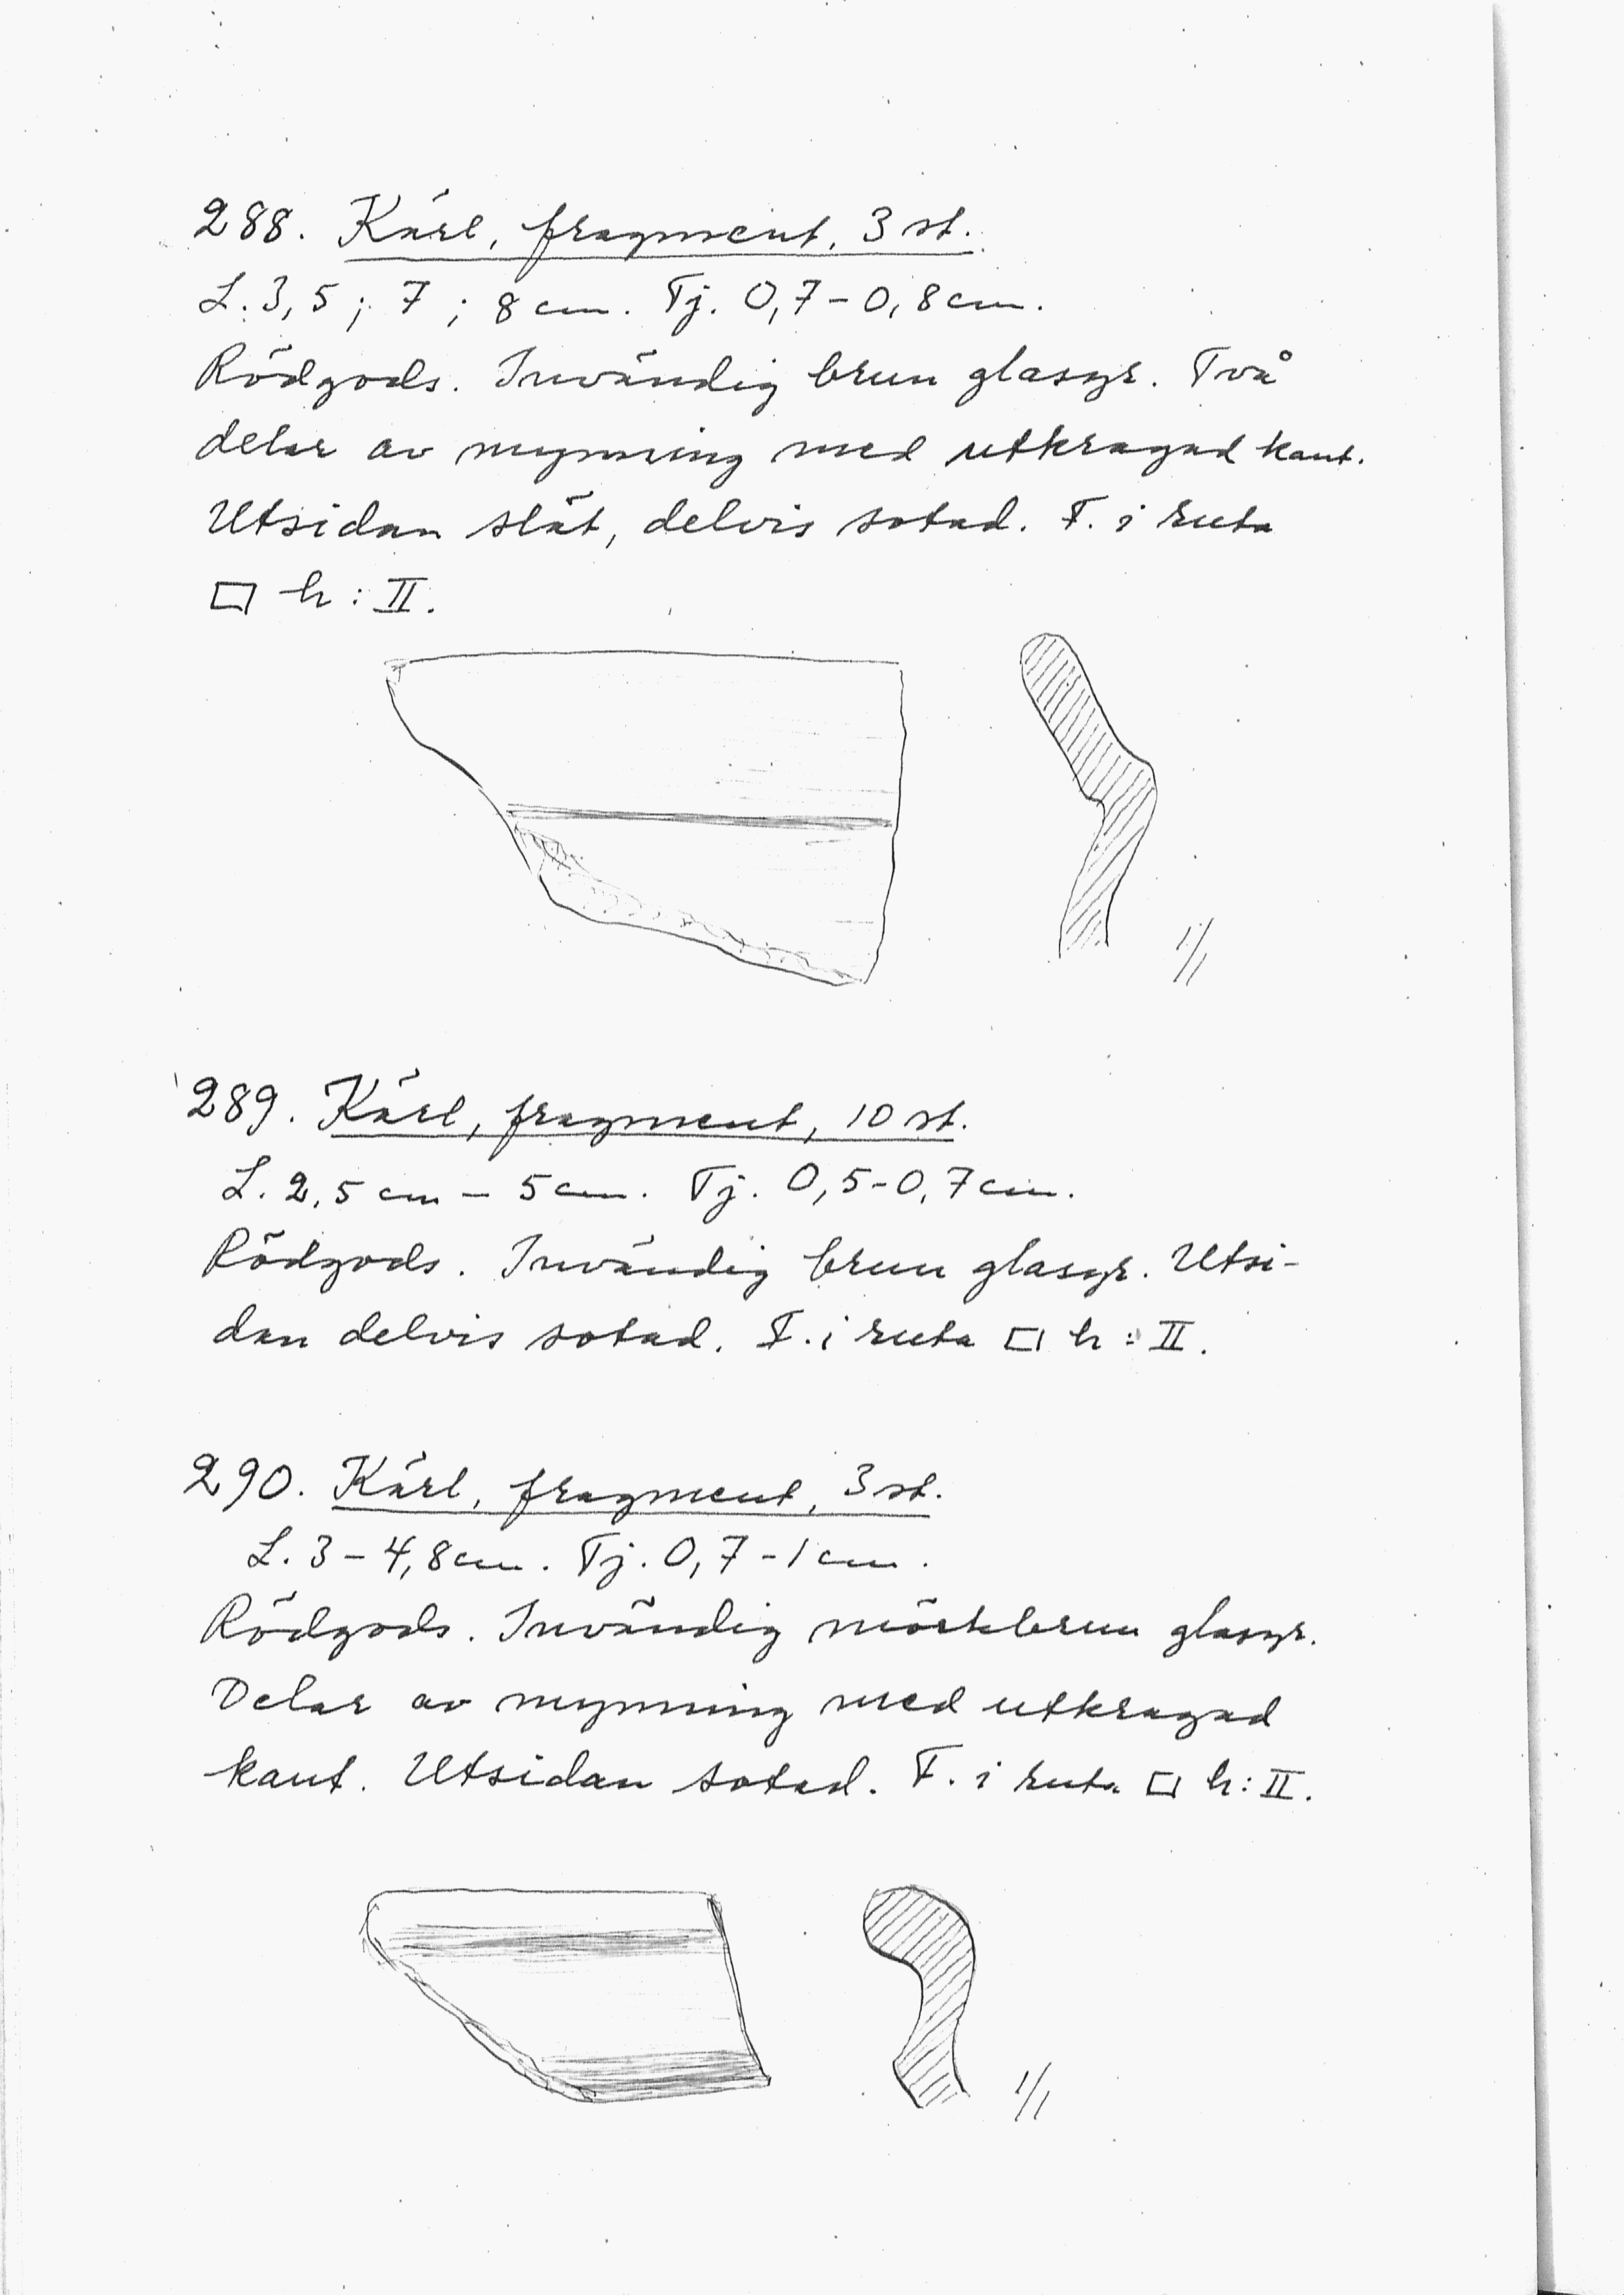 288. Kärl, fragment, 3 st.
L. 3,5 ; 7 ; 8 cm. Tj. 0,7 - 0,8 cm.
Rödgods. Invändig brun glasyr. Två
delar av mynning med utkragad kant.
Utsidan slät, delvis sotad. F. i ruta
□ h : II.
1/1
289. Kärl, fragment, 10 st.
L. 2,5 cm - 5 cm. Tj. 0,5-0,7 cm.
Rödgods. Invändig brun glasyr. Utsi-
dan delvis sotad. F. i ruta □ h : II.
290. Kärl, fragment, 3 st.
L. 3 - 4,8 cm. Tj. 0,7 - 1 cm.
Rödgods. Invändig mörkbrun glasyr.
Delar av mynning med utkragad
kant. Utsidan sotad. F. i ruta □ h : II.
1/1